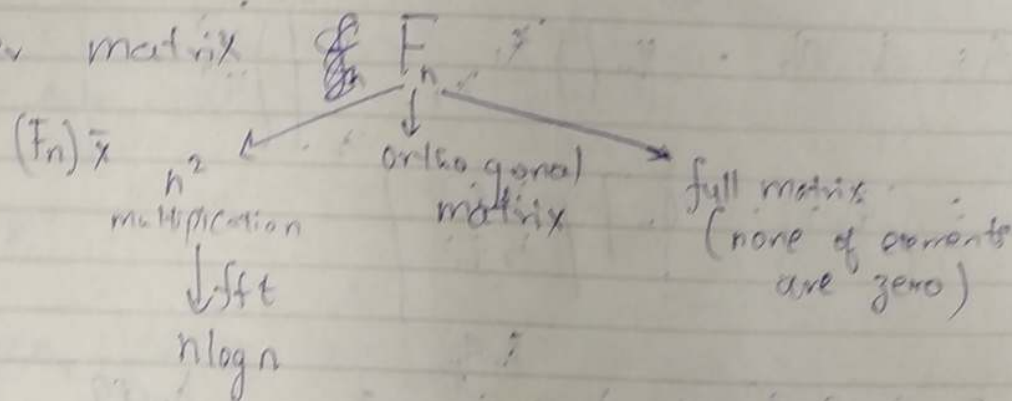 matrix F_n
(F_n) x̄
n²
multiplication
↓ fft
nlogn
orthogonal
matrix
full matrix
(none of elements
are zero)